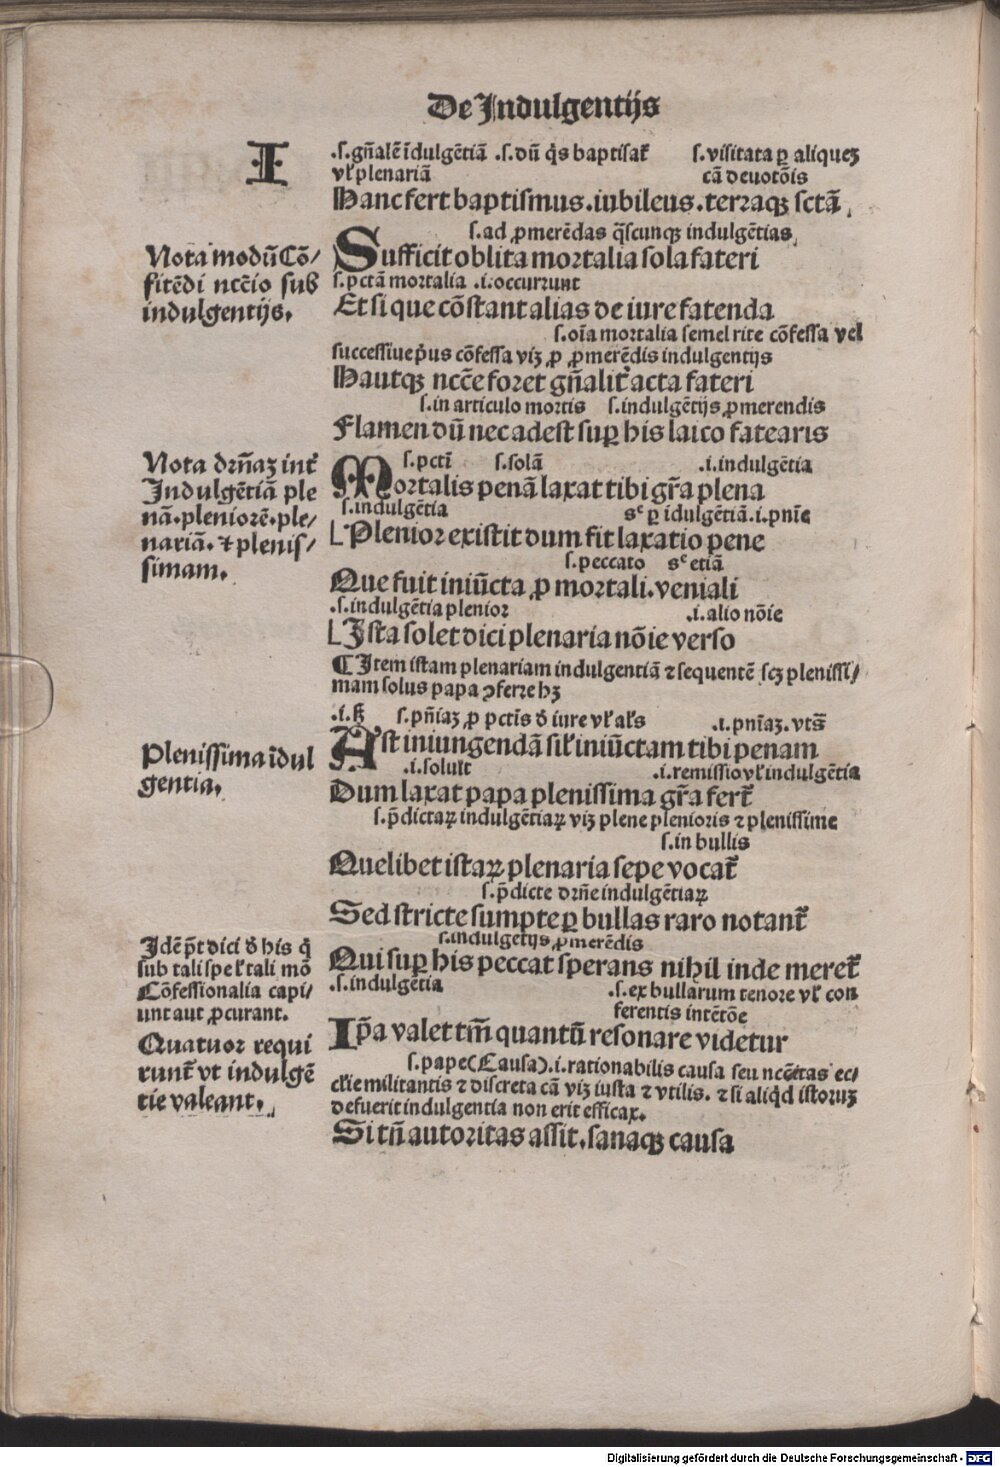 De Indulgentijs
I
.s.gn̄alē īdulgētiā .s.dū q̇s baptisat᷑ s.visitata ꝑ aliqueꝫ
vl̓ plenariā cā deuotōis
Hanc fert baptismus.iubileus.terraqꝫ sctā,
s.ad ꝓmerēdas q̄scunqꝫ indulgētias,
Nota modū Cō/
fitēdi ncēio sub
indulgentijs.
Sufficit oblita mortalia sola fateri
s.pctā mortalia .i.occurrunt
Et si que cōstant alias de iure fatenda
s.oīa mortalia semel rite cōfessa vel
successiue p̓us cōfessa viꝫ ꝓ ꝓmerēdis indulgentijs
Hautqꝫ nccē foret gn̄alit᷑ acta fateri
s.in articulo mortis s.indulgētijs ꝓmerendis
Flamen dū nec adest suꝑ his laico fatearis
Nota drn̄aꝫ int᷑
Indulgētiā ple
nā.pleniorē.ple/
nariā.⁊ plenis/
simam.
s.pcti s.solā .i.indulgētia
Mortalis penā laxat tibi gr̄a plena
s.indulgētia sꝫ ꝑ īdulgētiā.i.pnīe
Plenior existit dum fit laxatio pene
s.peccato sꝫ etiā
Que fuit iniūcta ꝓ mortali.veniali
.s.indulgētia plenior .i.alio nōie
Ista solet dici plenaria nōie verso
¶ Item istam plenariam indulgentiā ⁊ sequentē scꝫ plenissi/
mam solus papa ꝯferre hꝫ
.i.sꝫ s.pn̄iaꝫ ꝓ pctīs d̓ iure vl̓ al̓s .i.pnīaꝫ.vts̄
Plenissima īdul
gentia.
Ast iniungendā sil̓ iniūctam tibi penam
.i.soluit .i.remissio vl̓ indulgētia
Dum laxat papa plenissima gr̄a fert᷑
s.p̄dictaꝝ indulgētiaꝝ viꝫ plene plenioris ⁊ plenissime
s.in bullis
Quelibet istaꝝ plenaria sepe vocat᷑
s.p̄dicte drn̄e indulgētiaꝝ
Sed stricte sumpte ꝑ bullas raro notant᷑
s.indulgētijs ꝓmerēdis
Idē p̄t dici d̓ his q̇
sub tali spe l̓ tali mō
Cōfessionalia capi/
unt aut ꝓcurant.
Qui suꝑ his peccat sperans nihil inde meret᷑
.s.indulgētia .s.ex bullarum tenore vl̓ con
ferentis intētōe
Quatuor requi
runt᷑ vt indulgē
tie valeant.
Ip̄a valet tm̄ quantū resonare videtur
s.pape (Causa).i.rationabilis causa seu ncēitas ec/
cl̓ie militantis ⁊ discreta cā viꝫ iusta ⁊ vtilis. ⁊ si aliq̇d istoruꝫ
defuerit indulgentia non erit efficax.
Si tn̄ autoritas assit.sanaqꝫ causa
Digitalisierung gefördert durch die Deutsche Forschungsgemeinschaft - DFG